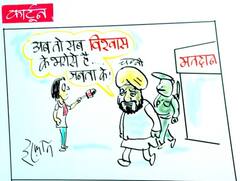 कार्टून
अब तो सब विश्वास
के भरोसे है..
जनता के!
मतदान
इरफ़ान